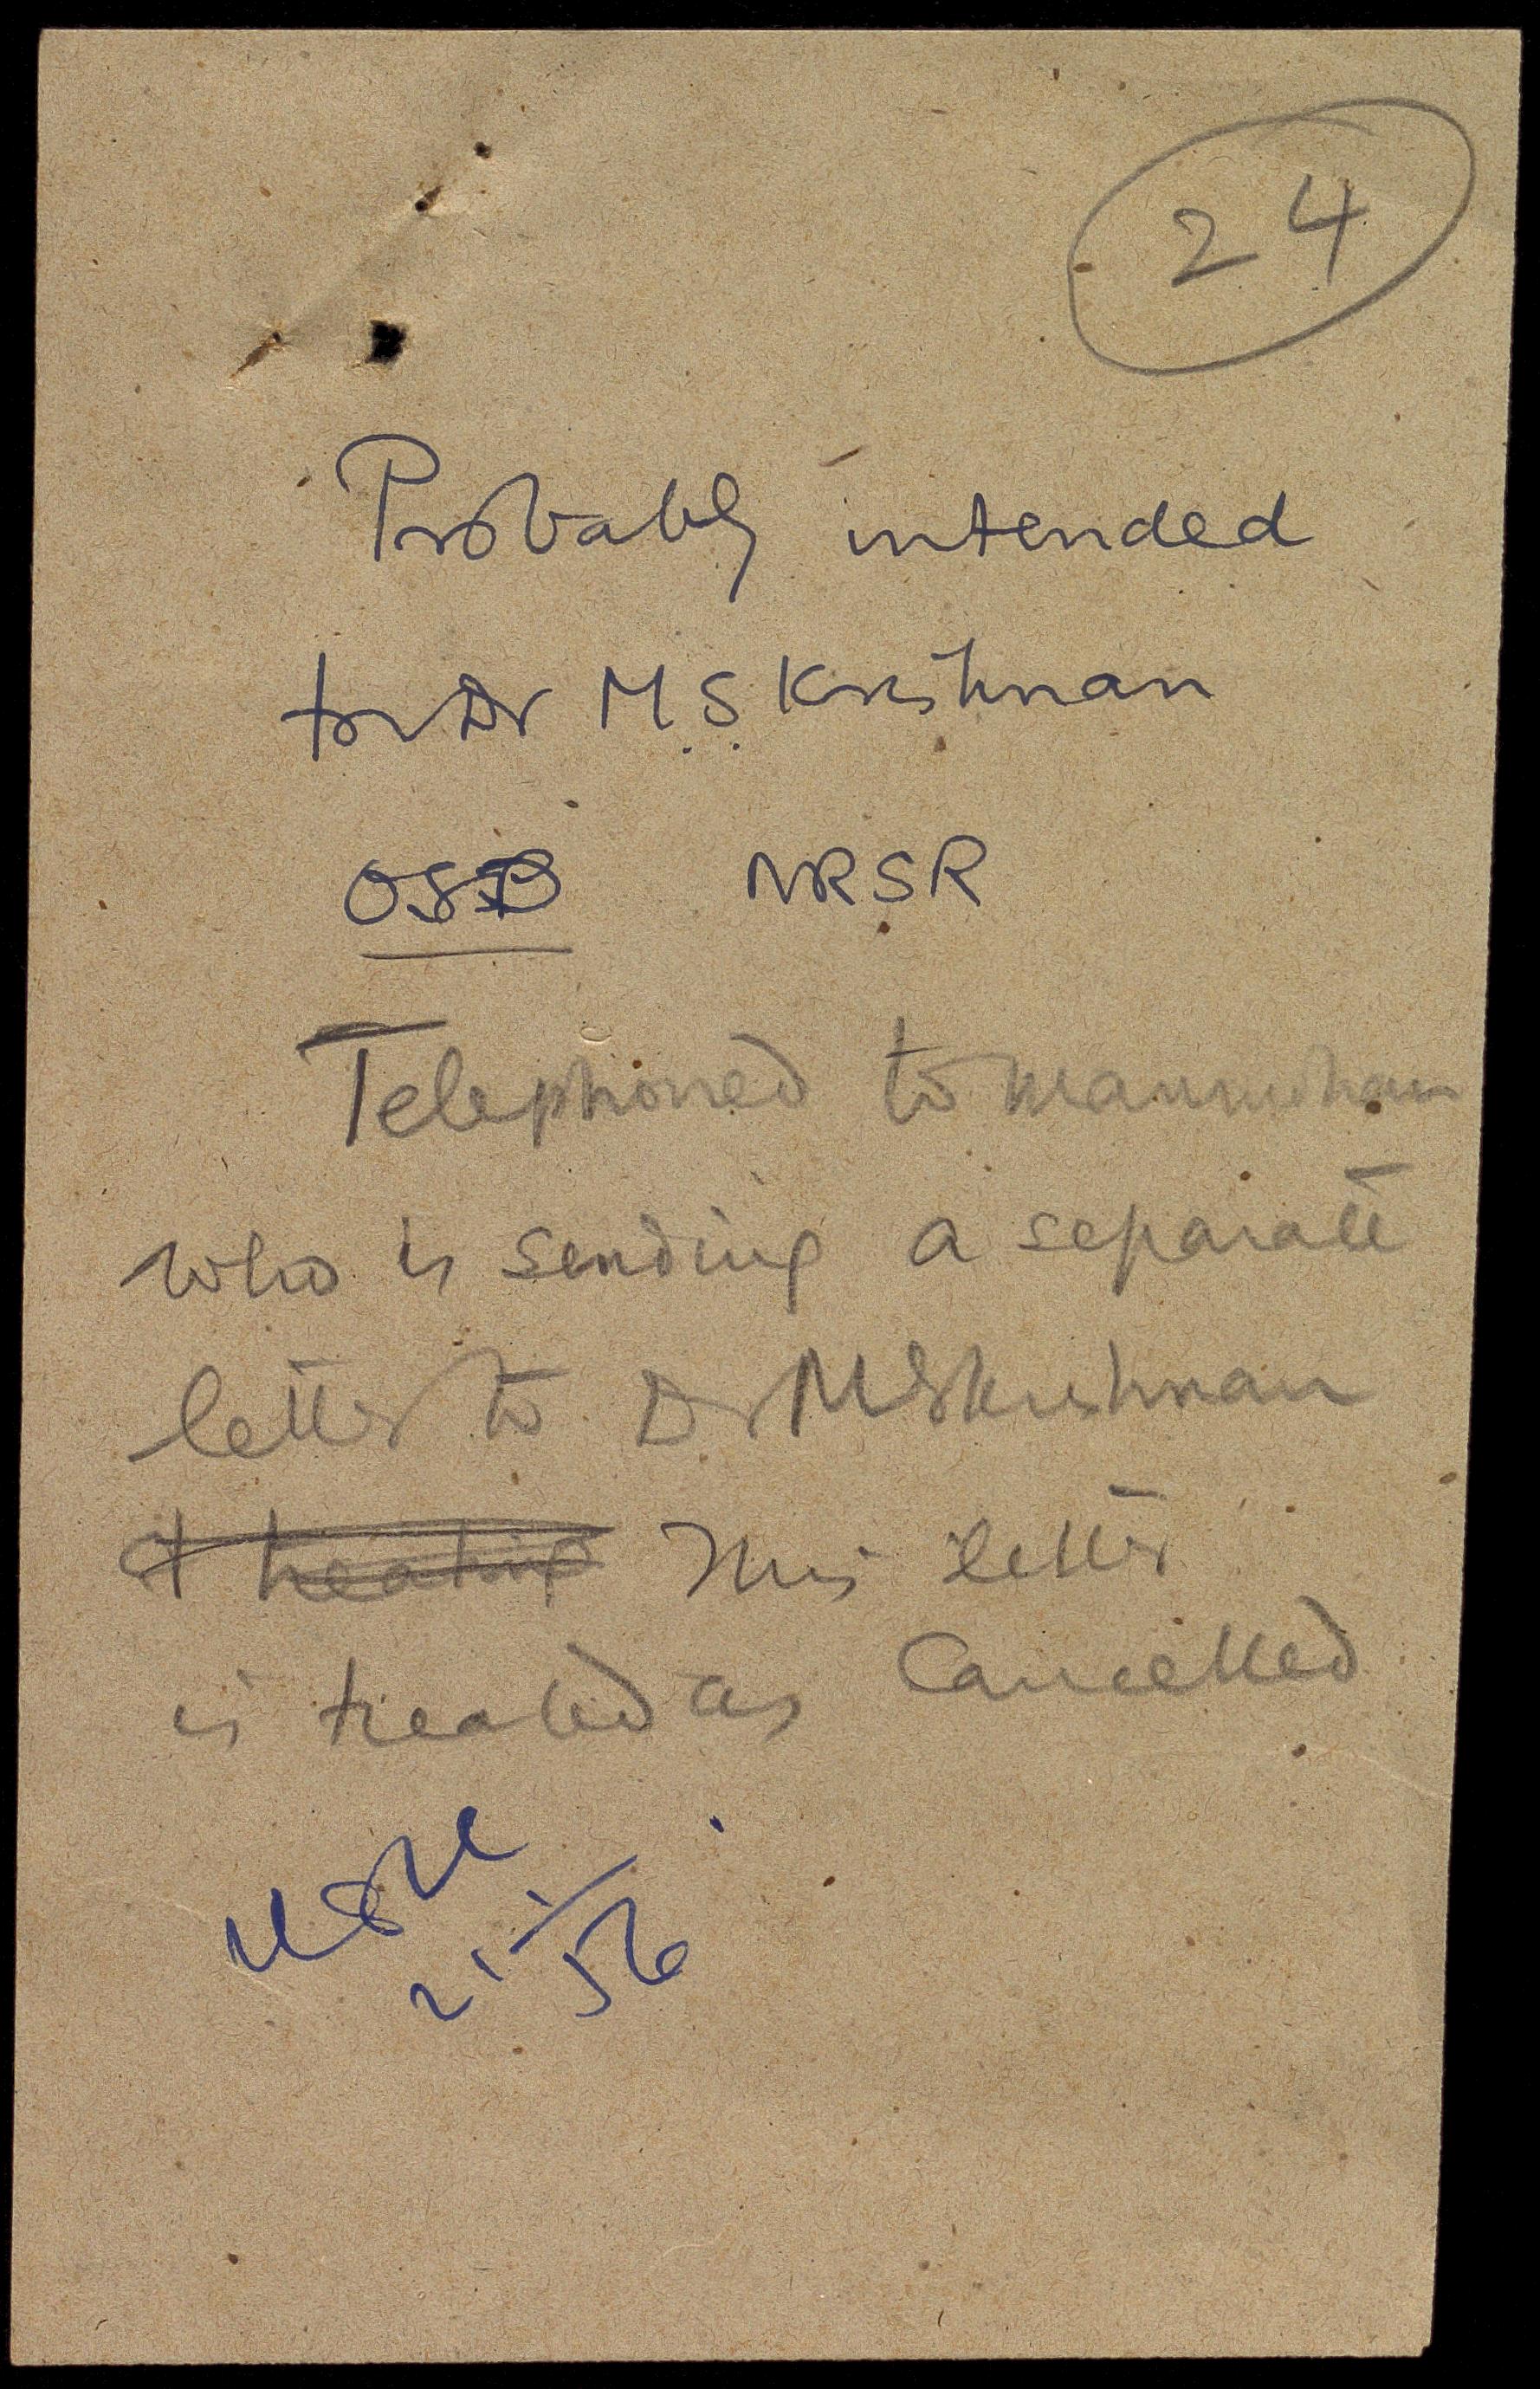 24
Probably intended
for Dr M.S. Krishnan
OSD NRSR
Telephoned to Manmohan
who is sending a separate
letter to Dr MS Krishnan
& treating This letter
is treated as Cancelled
21/56